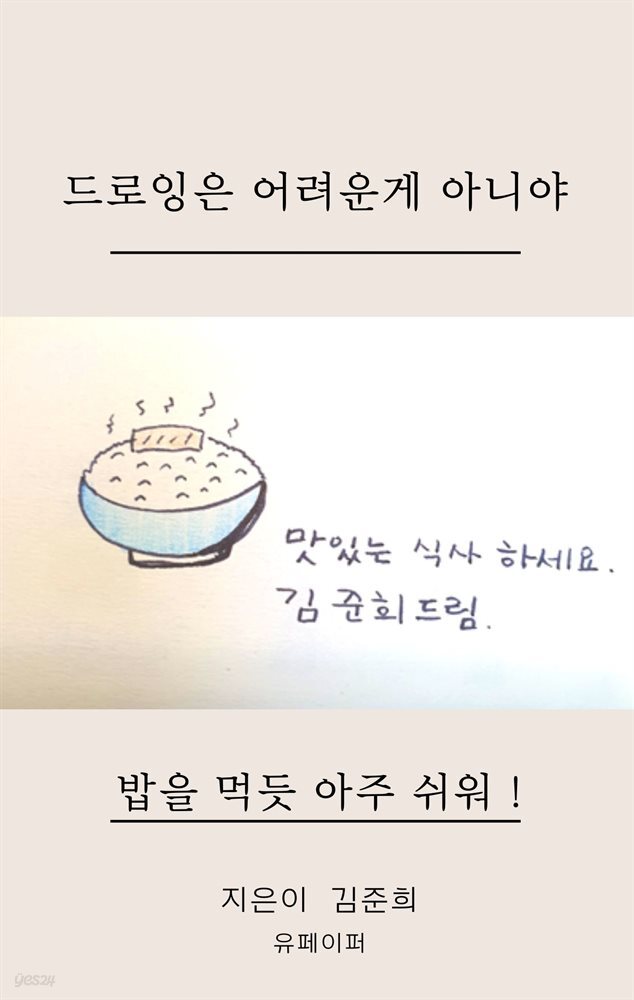 드로잉은 어려운게 아니야
맛있는 식사 하세요.
김준희드림.
밥을 먹듯 아주 쉬워 !
지은이 김준희
유페이퍼
yes24